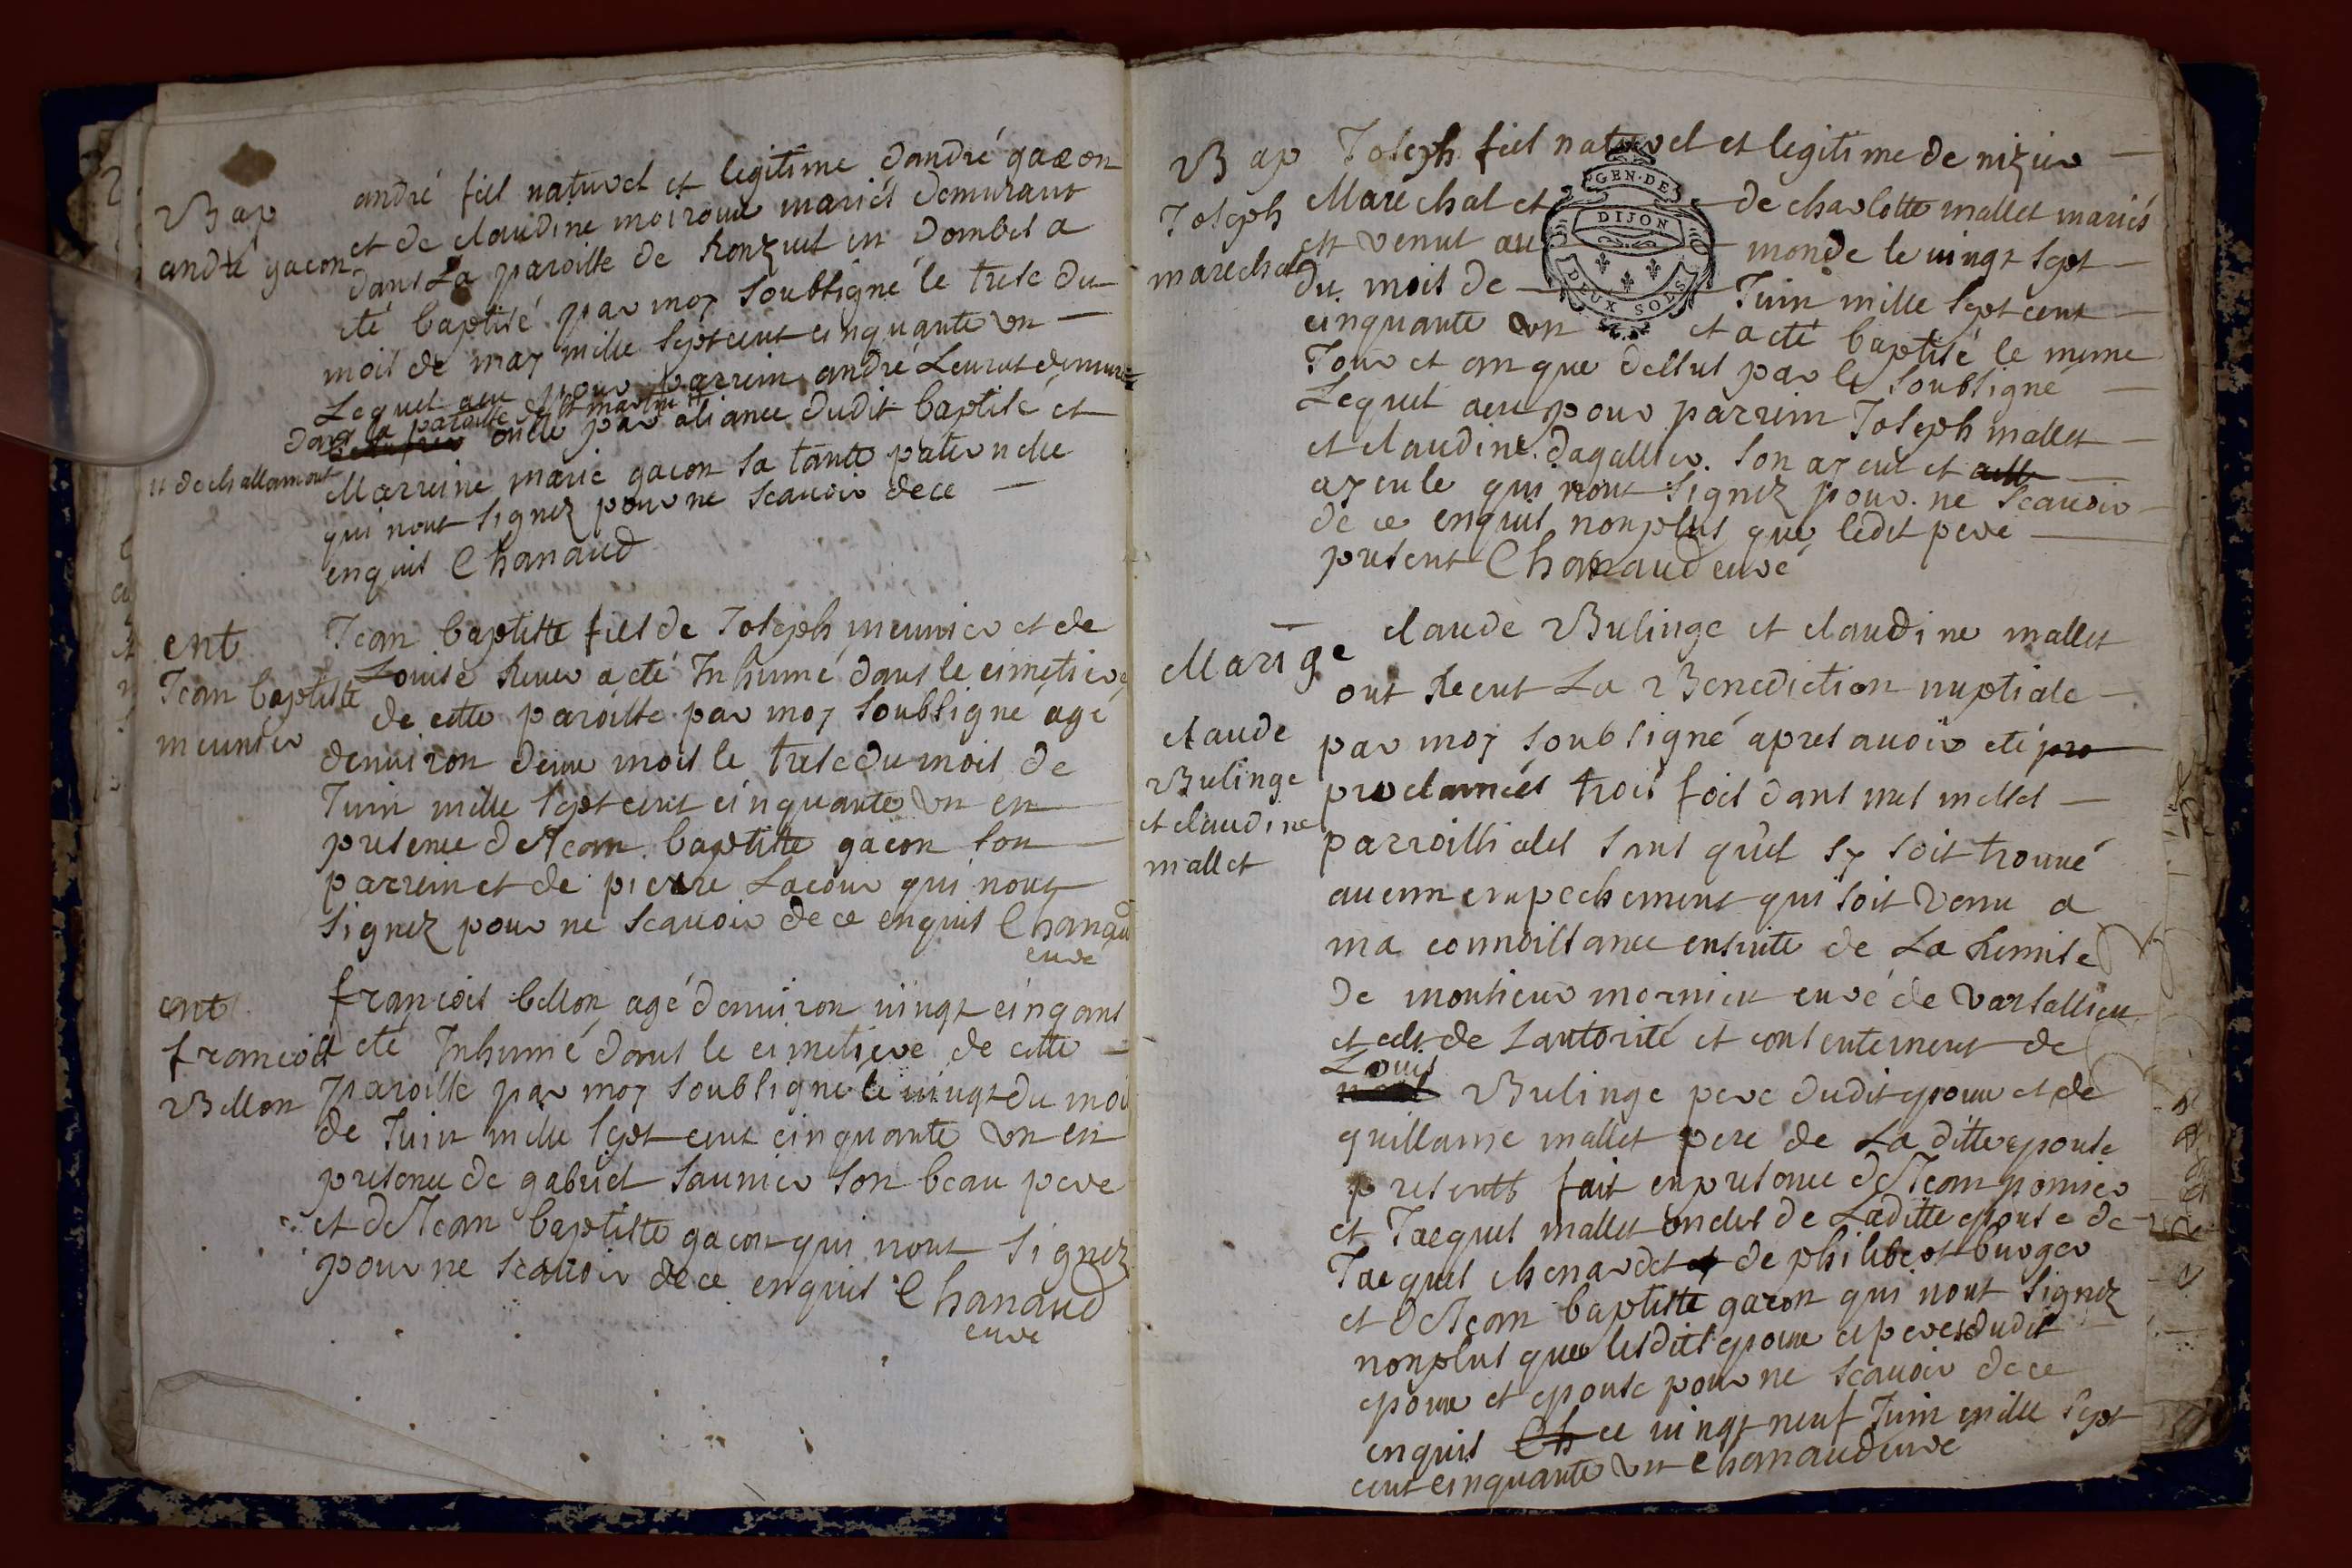 Bap
andré gacon
andré fiel naturel et legitime dandré gacon
et de claudine moiroux mariés demurant
dans La paroisse de Ronzuel en Dombes a
eté baptisé par moy soubsigné le trese du
mois de may mille sept cent cinquante un
Lequel aeu pour parrein andré Leurat demurant
dans la paroisse de st martin
oncle par aliance dudit baptisé et
et de challamont
Marreine marie gacon sa tante paternelle
qui nont signez pour ne scavoir de ce
enquis Chanaud
ent
Jean baptiste
meunier
Jean baptiste fiels de Joseph meunier et de
Louise Reux a eté Inhumé dans le cimetiere
de cette paroisse par moy soubsigné agé
denviron deux mois le trese du mois de
Juin mille sept cent cinquante un en
presence de Jean baptiste gacon son
parrein et de pierre Lacour qui nont
signez pour ne scavoir de ce enquis Chanaud
curé
ent
francois
Bellon
francois bellon agé denviron vingt cinq ans
a eté Inhumé dans le cimetiere de cette
paroisse par moy soubsigné le vingt du moi
de Juin mille sept cent cinquante un en
presence de gabriel saunier son beau pere
et de Jean baptiste gacon qui nont signez
pour ne scavoir de ce enquis Chanaud
curé
GEN·DE
DIJON
DEUX SOLS
Bap
Joseph
marechal
Joseph fiel naturel et legitime de nizier
Marechal et de charlotte mallet mariés
est venut au monde le vingt sept
du mois de Juin mille sept cent
cinquante un et a eté baptisé le meme
Jour et an que dessus par le soubsigné
Lequel aeu pour parrein Joseph mallet
et claudine dagallier son ayeul et
ayeule qui nont signez pour ne scavoir
de ce enquis nonplus que ledit pere
present Chanaud curé
Marige
claude
Bulinge
et claudine
mallet
claude Bulinge et claudine mallet
ont Receut La Benediction nuptiale
par moy soubsigné apres avoir eté pro
proclamés trois fois dans mes messes
parroissiales sans qu'il sy soit trouvé
aucun empechement qui soit venu a
ma connoissance ensuite de La Remise
de monsieur mornieu curé de varsallieu
et de Lautorité et consentement de
Louis
Bulinge pere dudit epoux et de
guillame mallet pere de La ditte epouse
presents fait en presence de Jean pomier
et Jacques mallet oncles de Laditte epouse de
Jacques chenardet et de philibert burger
et de Jean baptiste gacon qui nont signez
nonplus que lesdits epoux et peres dudit
epoux et epouse pour ne scavoir de ce
enquis Ch ce vingt neuf Juin mille sept
cent cinquante un Chanaud curé